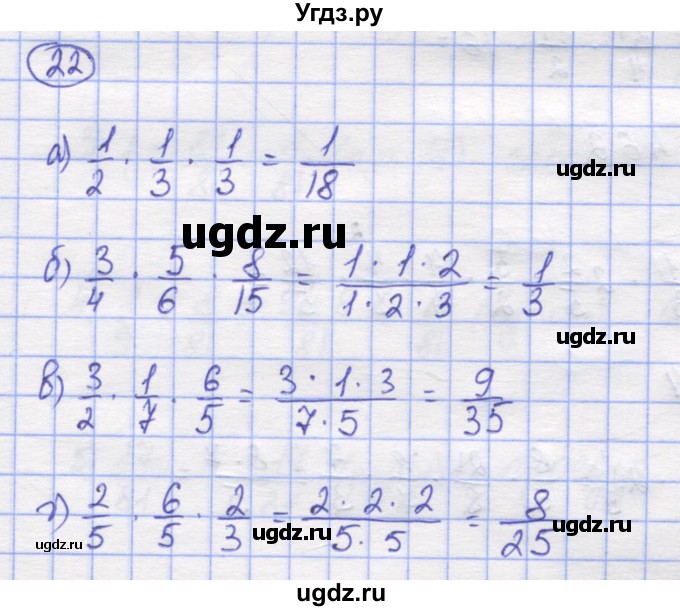 Угдз.ру
22
а) 1/2 · 1/3 · 1/3 = 1/18
ugdz.ru
ugdz.ru
б) 3/4 · 5/6 · 8/15 = 1·1·2/1·2·3 = 1/3
ugdz.ru
в) 3/2 · 1/7 · 6/5 = 3·1·3/7·5 = 9/35
г) 2/5 · 6/5 · 2/3 = 2·2·2/5·5 = 8/25
ugdz.ru
ugdz.ru
ugdz.ru
ugdz.ru